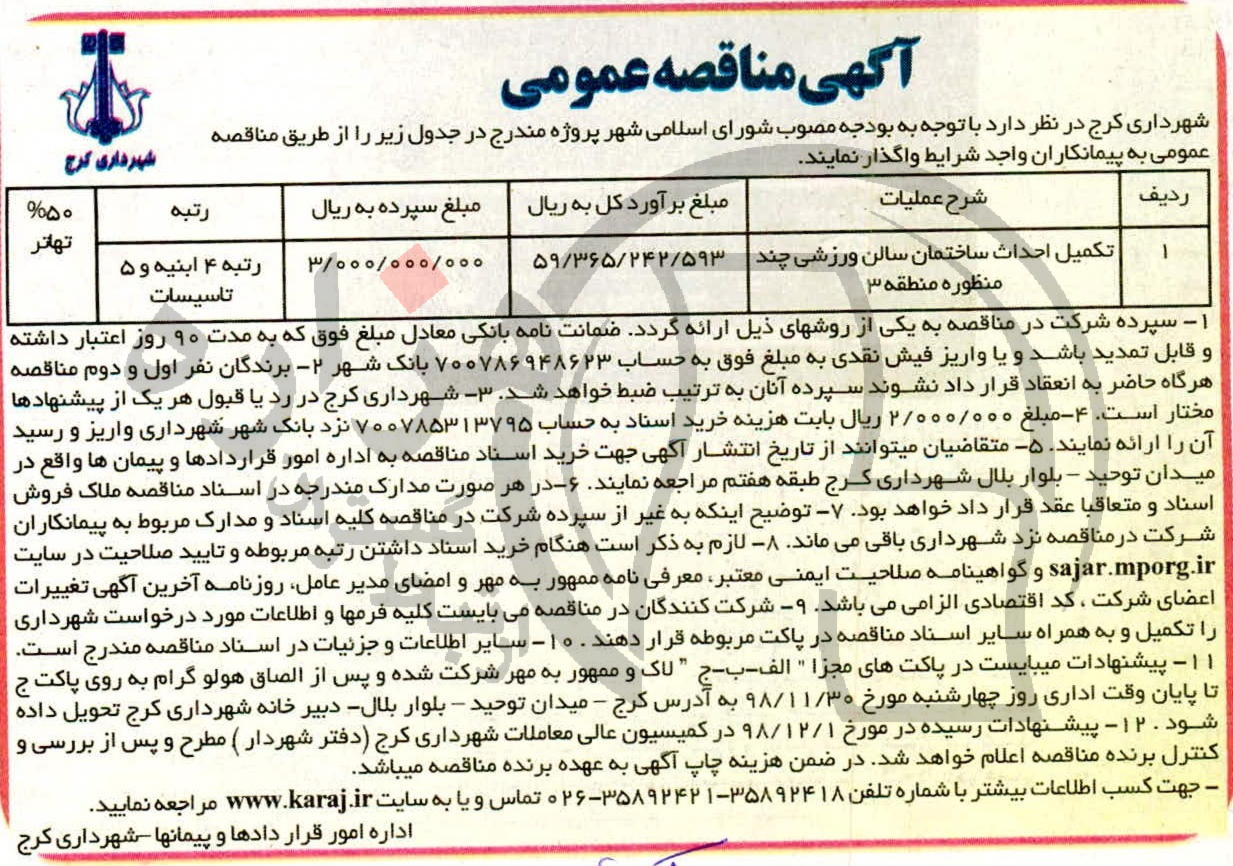 آگهی مناقصه عمومی
شهرداری کرج
شهرداری کرج در نظر دارد با توجه به بودجه مصوب شورای اسلامی شهر پروژه مندرج در جدول زیر را از طریق مناقصه
عمومی به پیمانکاران واجد شرایط واگذار نمایند.
ردیف شرح عملیات مبلغ برآورد کل به ریال مبلغ سپرده به ریال رتبه ۵۰% تهاتر
۱ تکمیل احداث ساختمان سالن ورزشی چند ۵۹/۳۶۵/۲۴۲/۵۹۳ ۳/۰۰۰/۰۰۰/۰۰۰ رتبه ۴ ابنیه و ۵
منظوره منطقه ۳ تاسیسات
۱- سپرده شرکت در مناقصه به یکی از روشهای ذیل ارائه گردد. ضمانت نامه بانکی معادل مبلغ فوق که به مدت ۹۰ روز اعتبار داشته
و قابل تمدید باشد و یا واریز فیش نقدی به مبلغ فوق به حساب ۷۰۰۷۸۶۹۴۸۶۲۳ بانک شهر ۲- برندگان نفر اول و دوم مناقصه
هرگاه حاضر به انعقاد قرار داد نشوند سپرده آنان به ترتیب ضبط خواهد شد. ۳- شهرداری کرج در رد یا قبول هر یک از پیشنهادها
مختار است. ۴-مبلغ ۲/۰۰۰/۰۰۰ ریال بابت هزینه خرید اسناد به حساب ۷۰۰۷۸۵۳۱۳۷۹۵ نزد بانک شهر شهرداری واریز و رسید
آن را ارائه نمایند. ۵- متقاضیان میتوانند از تاریخ انتشار آگهی جهت خرید اسناد مناقصه به اداره امور قراردادها و پیمان ها واقع در
میدان توحید – بلوار بلال شهرداری کرج طبقه هفتم مراجعه نمایند. ۶-در هر صورت مدارک مندرجه در اسناد مناقصه ملاک فروش
اسناد و متعاقبا عقد قرار داد خواهد بود. ۷- توضیح اینکه به غیر از سپرده شرکت در مناقصه کلیه اسناد و مدارک مربوط به پیمانکاران
شرکت درمناقصه نزد شهرداری باقی می ماند. ۸- لازم به ذکر است هنگام خرید اسناد داشتن رتبه مربوطه و تایید صلاحیت در سایت
sajar.mporg.ir و گواهینامه صلاحیت ایمنی معتبر، معرفی نامه ممهور به مهر و امضای مدیر عامل، روزنامه آخرین آگهی تغییرات
اعضای شرکت ، کد اقتصادی الزامی می باشد. ۹- شرکت کنندگان در مناقصه می بایست کلیه فرمها و اطلاعات مورد درخواست شهرداری
را تکمیل و به همراه سایر اسناد مناقصه در پاکت مربوطه قرار دهند . ۱۰- سایر اطلاعات و جزئیات در اسناد مناقصه مندرج است.
۱۱- پیشنهادات میبایست در پاکت های مجزا " الف-ب-ج " لاک و ممهور به مهر شرکت شده و پس از الصاق هولو گرام به روی پاکت ج
تا پایان وقت اداری روز چهارشنبه مورخ ۹۸/۱۱/۳۰ به آدرس کرج – میدان توحید – بلوار بلال- دبیر خانه شهرداری کرج تحویل داده
شود . ۱۲- پیشنهادات رسیده در مورخ ۹۸/۱۲/۱ در کمیسیون عالی معاملات شهرداری کرج (دفتر شهردار ) مطرح و پس از بررسی و
کنترل برنده مناقصه اعلام خواهد شد. در ضمن هزینه چاپ آگهی به عهده برنده مناقصه میباشد.
- جهت کسب اطلاعات بیشتر با شماره تلفن ۳۵۸۹۲۴۱۸-۳۵۸۹۲۴۲۱-۰۲۶ تماس و یا به سایت www.karaj.ir مراجعه نمایید.
اداره امور قرار دادها و پیمانها –شهرداری کرج